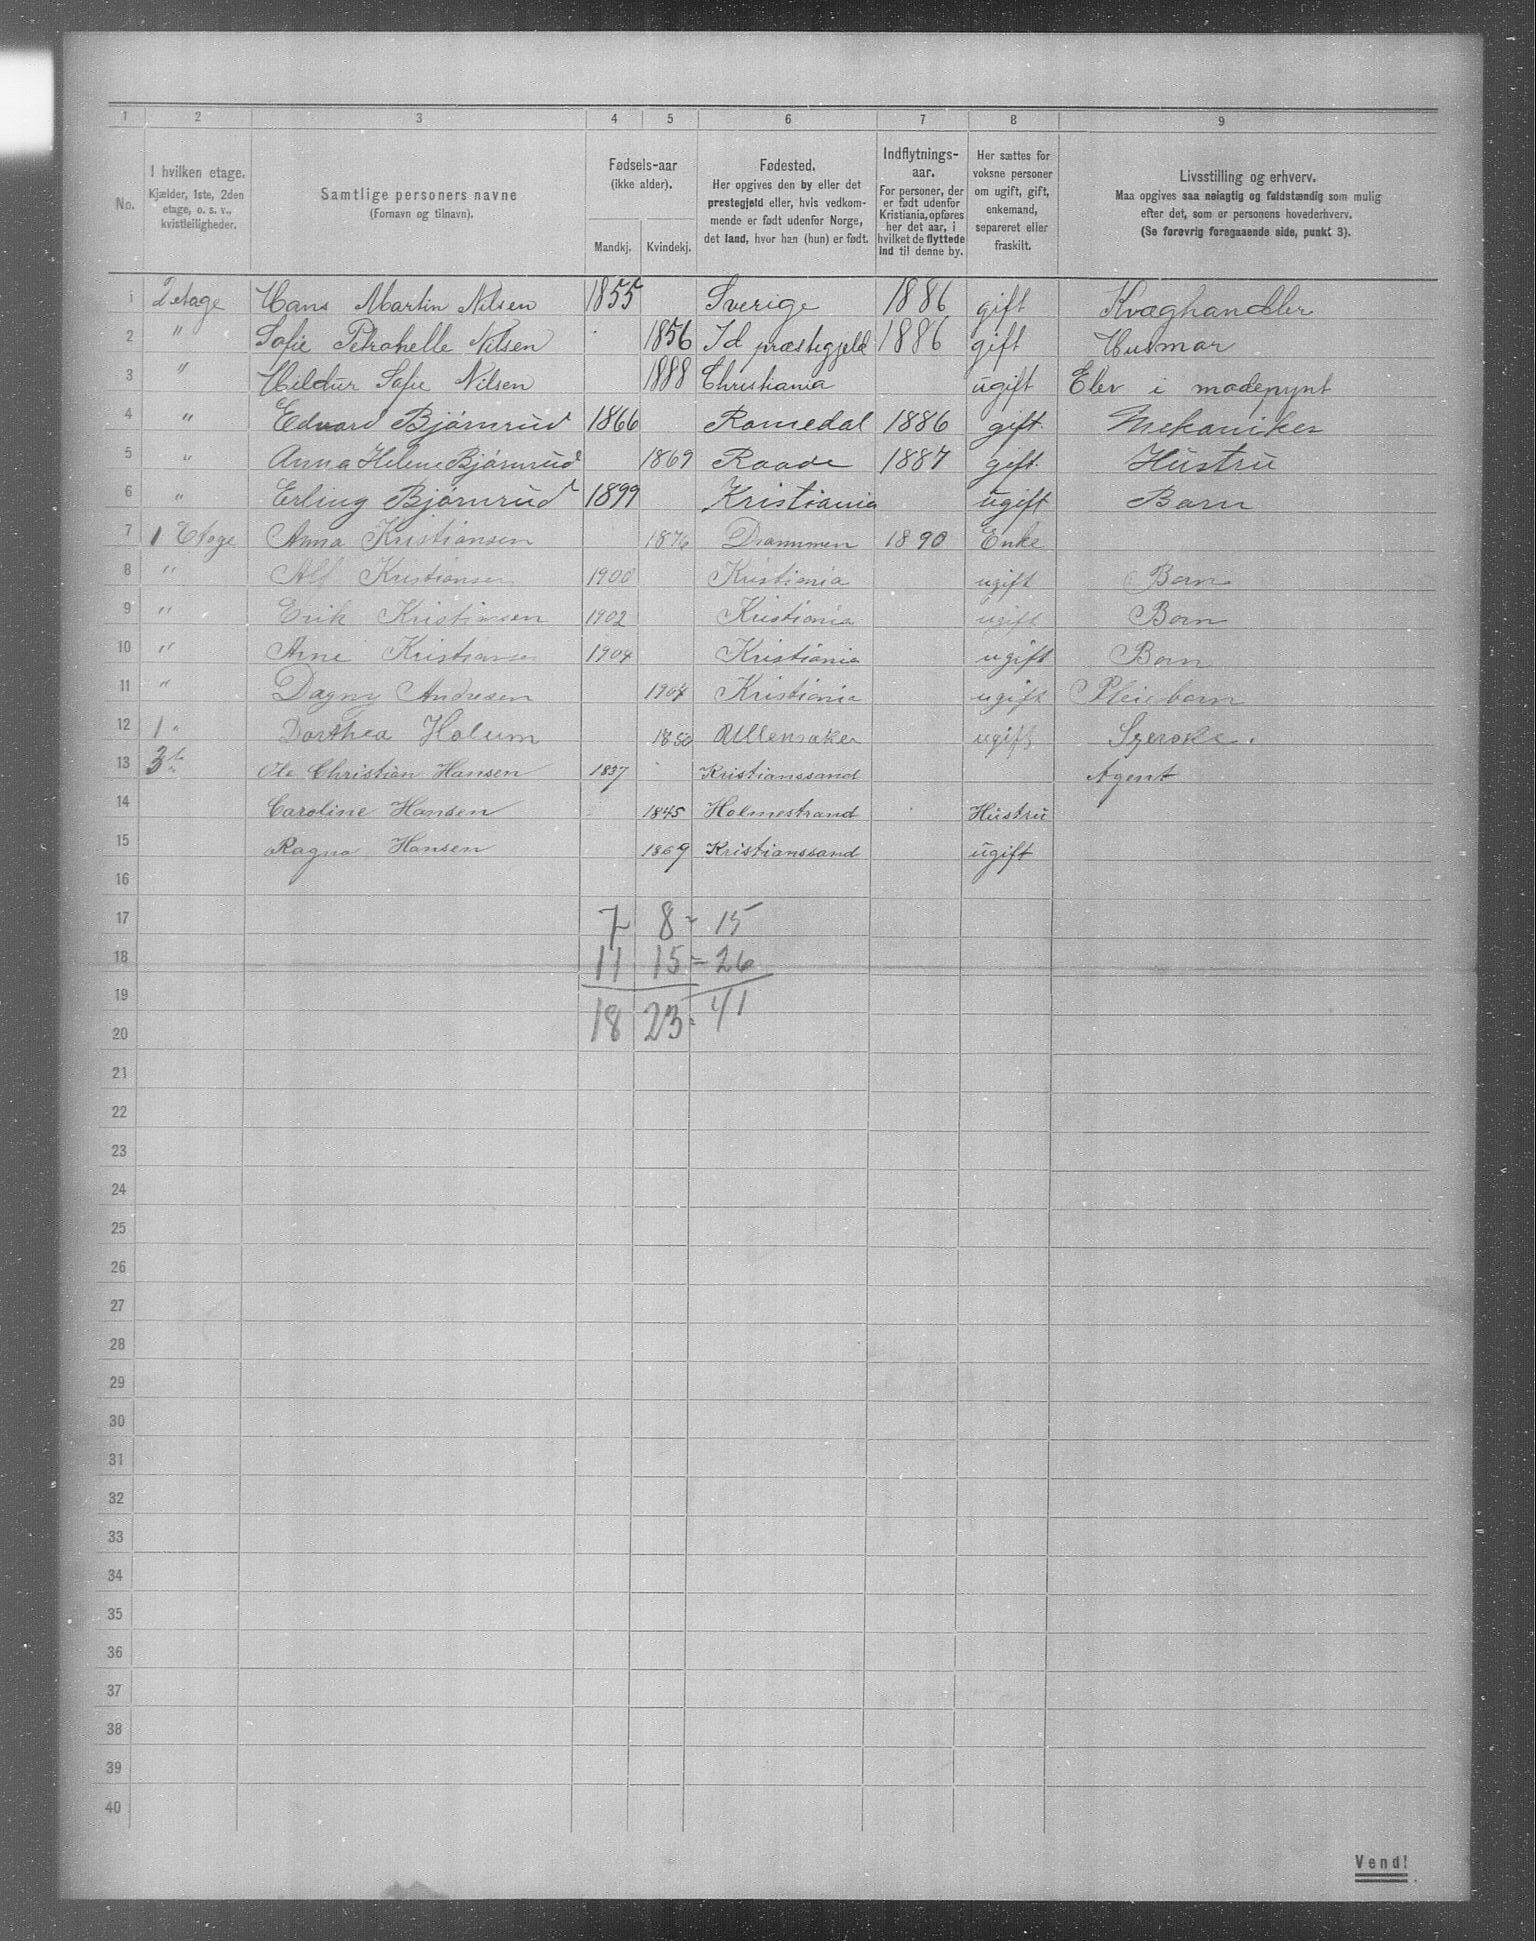 1 2 3 4 5 6 7 8 9
No.
I hvilken etage.
Kjælder, 1ste, 2den
etage, o. s. v.,
kvistleiligheder.
Samtlige personers navne
(Fornavn og tilnavn).
Fødsels-aar
(ikke alder).
Mandkj. Kvindekj.
Fødested.
Her opgives den by eller det
prestegjeld eller, hvis vedkom-
mende er født udenfor Norge,
det land, hvor han (hun) er født.
Indflytnings-
aar.
For personer, der
er født udenfor
Kristiania, opføres
her det aar, i
hvilket de flyttede
ind til denne by.
Her sættes for
voksne personer
om ugift, gift,
enkemand,
separeret eller
fraskilt.
Livsstilling og erhverv.
Maa opgives saa nøiagtig og fuldstændig som mulig
efter det, som er personens hovederhverv.
(Se forøvrig foregaaende side, punkt 3).
1 2 etage Hans Martin Nilsen 1855 Sverige 1886 gift Kvæghandler
2 " Sofie Petrohelle Nilsen 1856 Id præstegjeld 1886 gift Husmor
3 " Hildur Sofie Nilsen 1888 Christiania ugift Elev i modepynt
4 " Edvard Bjørnrud 1866 Romedal 1886 gift. Mekaniker
5 " Anna Helene Bjørnrud 1869 Raade 1887 gift. Hustru
6 " Erling Bjørnrud 1899 Kristiania ugift Barn
7 1 Etage Anna Kristiansen 1876 Drammen 1890 Enke
8 " Alf Kristiansen 1900 Kristiania ugift Barn
9 " Erik Kristiansen 1902 Kristiania ugift Barn
10 " Arne Kristiansen 1904 Kristiania ugift Barn
11 " Dagny Andresen 1904 Kristiania ugift Pleiebarn
12 1 " Dorthea Holum 1850 Ullensaker ugift
13 3 Ole Christian Hansen 1837 Kristianssand Agent
14 Caroline Hansen 1845 Holmestrand Hustru
15 Ragna Hansen 1869 Kristianssand ugift
16
17 7 8 = 15
18 11 15 = 26
19
20 18 23 = 41
21
22
23
24
25
26
27
28
29
30
31
32
33
34
35
36
37
38
39
40
Vend!